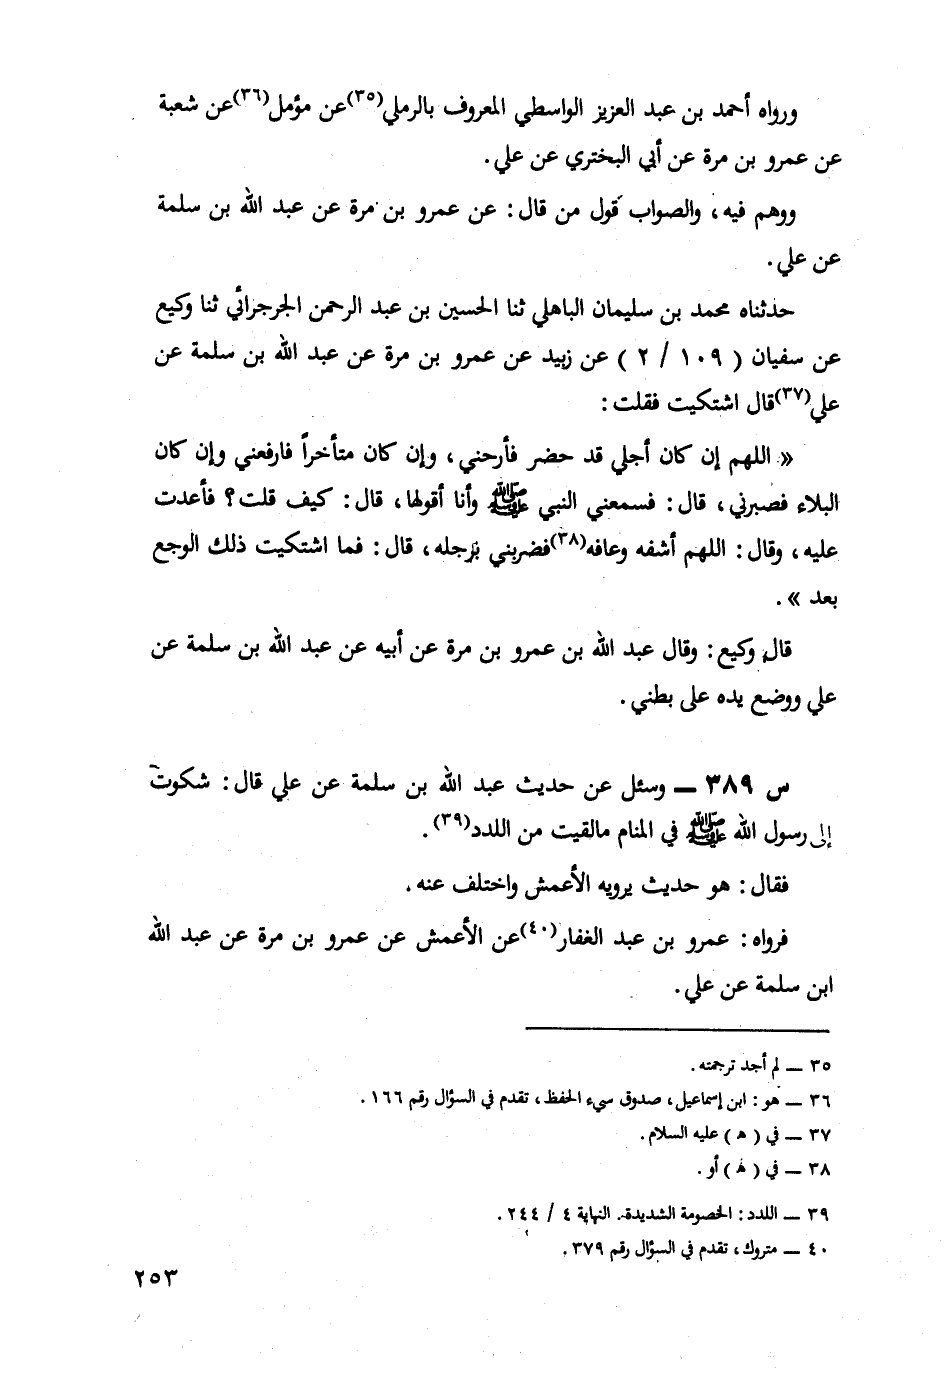 ورواه أحمد بن عبد العزيز الواسطي المعروف بالرملي(٣٥)عن مؤمل(٣٦)عن شعبة
عن عمرو بن مرة عن أبي البختري عن علي.
ووهم فيه، والصواب قول من قال: عن عمرو بن مرة عن عبد الله بن سلمة
عن علي.
حدثناه محمد بن سليمان الباهلي ثنا الحسين بن عبد الرحمن الجرجرائي ثنا وكيع
عن سفيان ( ١٠٩ / ٢ ) عن زبيد عن عمرو بن مرة عن عبد الله بن سلمة عن
علي(٣٧)قال اشتكيت فقلت:
« اللهم إن كان أجلي قد حضر فأرحني، وإن كان متأخراً فارفعني وإن كان
البلاء فصبرني، قال: فسمعني النبي ﷺ وأنا أقولها، قال: كيف قلت؟ فأعدت
عليه، وقال: اللهم أشفه وعافه(٣٨)فضربني برجله، قال: فما اشتكيت ذلك الوجع
بعد ».
قال وكيع: وقال عبد الله بن عمرو بن مرة عن أبيه عن عبد الله بن سلمة عن
علي ووضع يده على بطني.
س ٣٨٩ ـ وسئل عن حديث عبد الله بن سلمة عن علي قال: شكوت
إلى رسول الله ﷺ في المنام مالقيت من اللدد(٣٩).
فقال: هو حديث يرويه الأعمش واختلف عنه.
فرواه: عمرو بن عبد الغفار(٤٠)عن الأعمش عن عمرو بن مرة عن عبد الله
ابن سلمة عن علي.
٣٥ ـ لم أجد ترجمته.
٣٦ ـ هو: ابن إسماعيل، صدوق سيء الحفظ، تقدم في السؤال رقم ١٦٦.
٣٧ ـ في ( ه ) عليه السلام.
٣٨ ـ في ( ه ) أو.
٣٩ ـ اللدد: الخصومة الشديدة. النهاية ٤ / ٢٤٤.
٤٠ ـ متروك، تقدم في السؤال رقم ٣٧٩.
٢٥٣